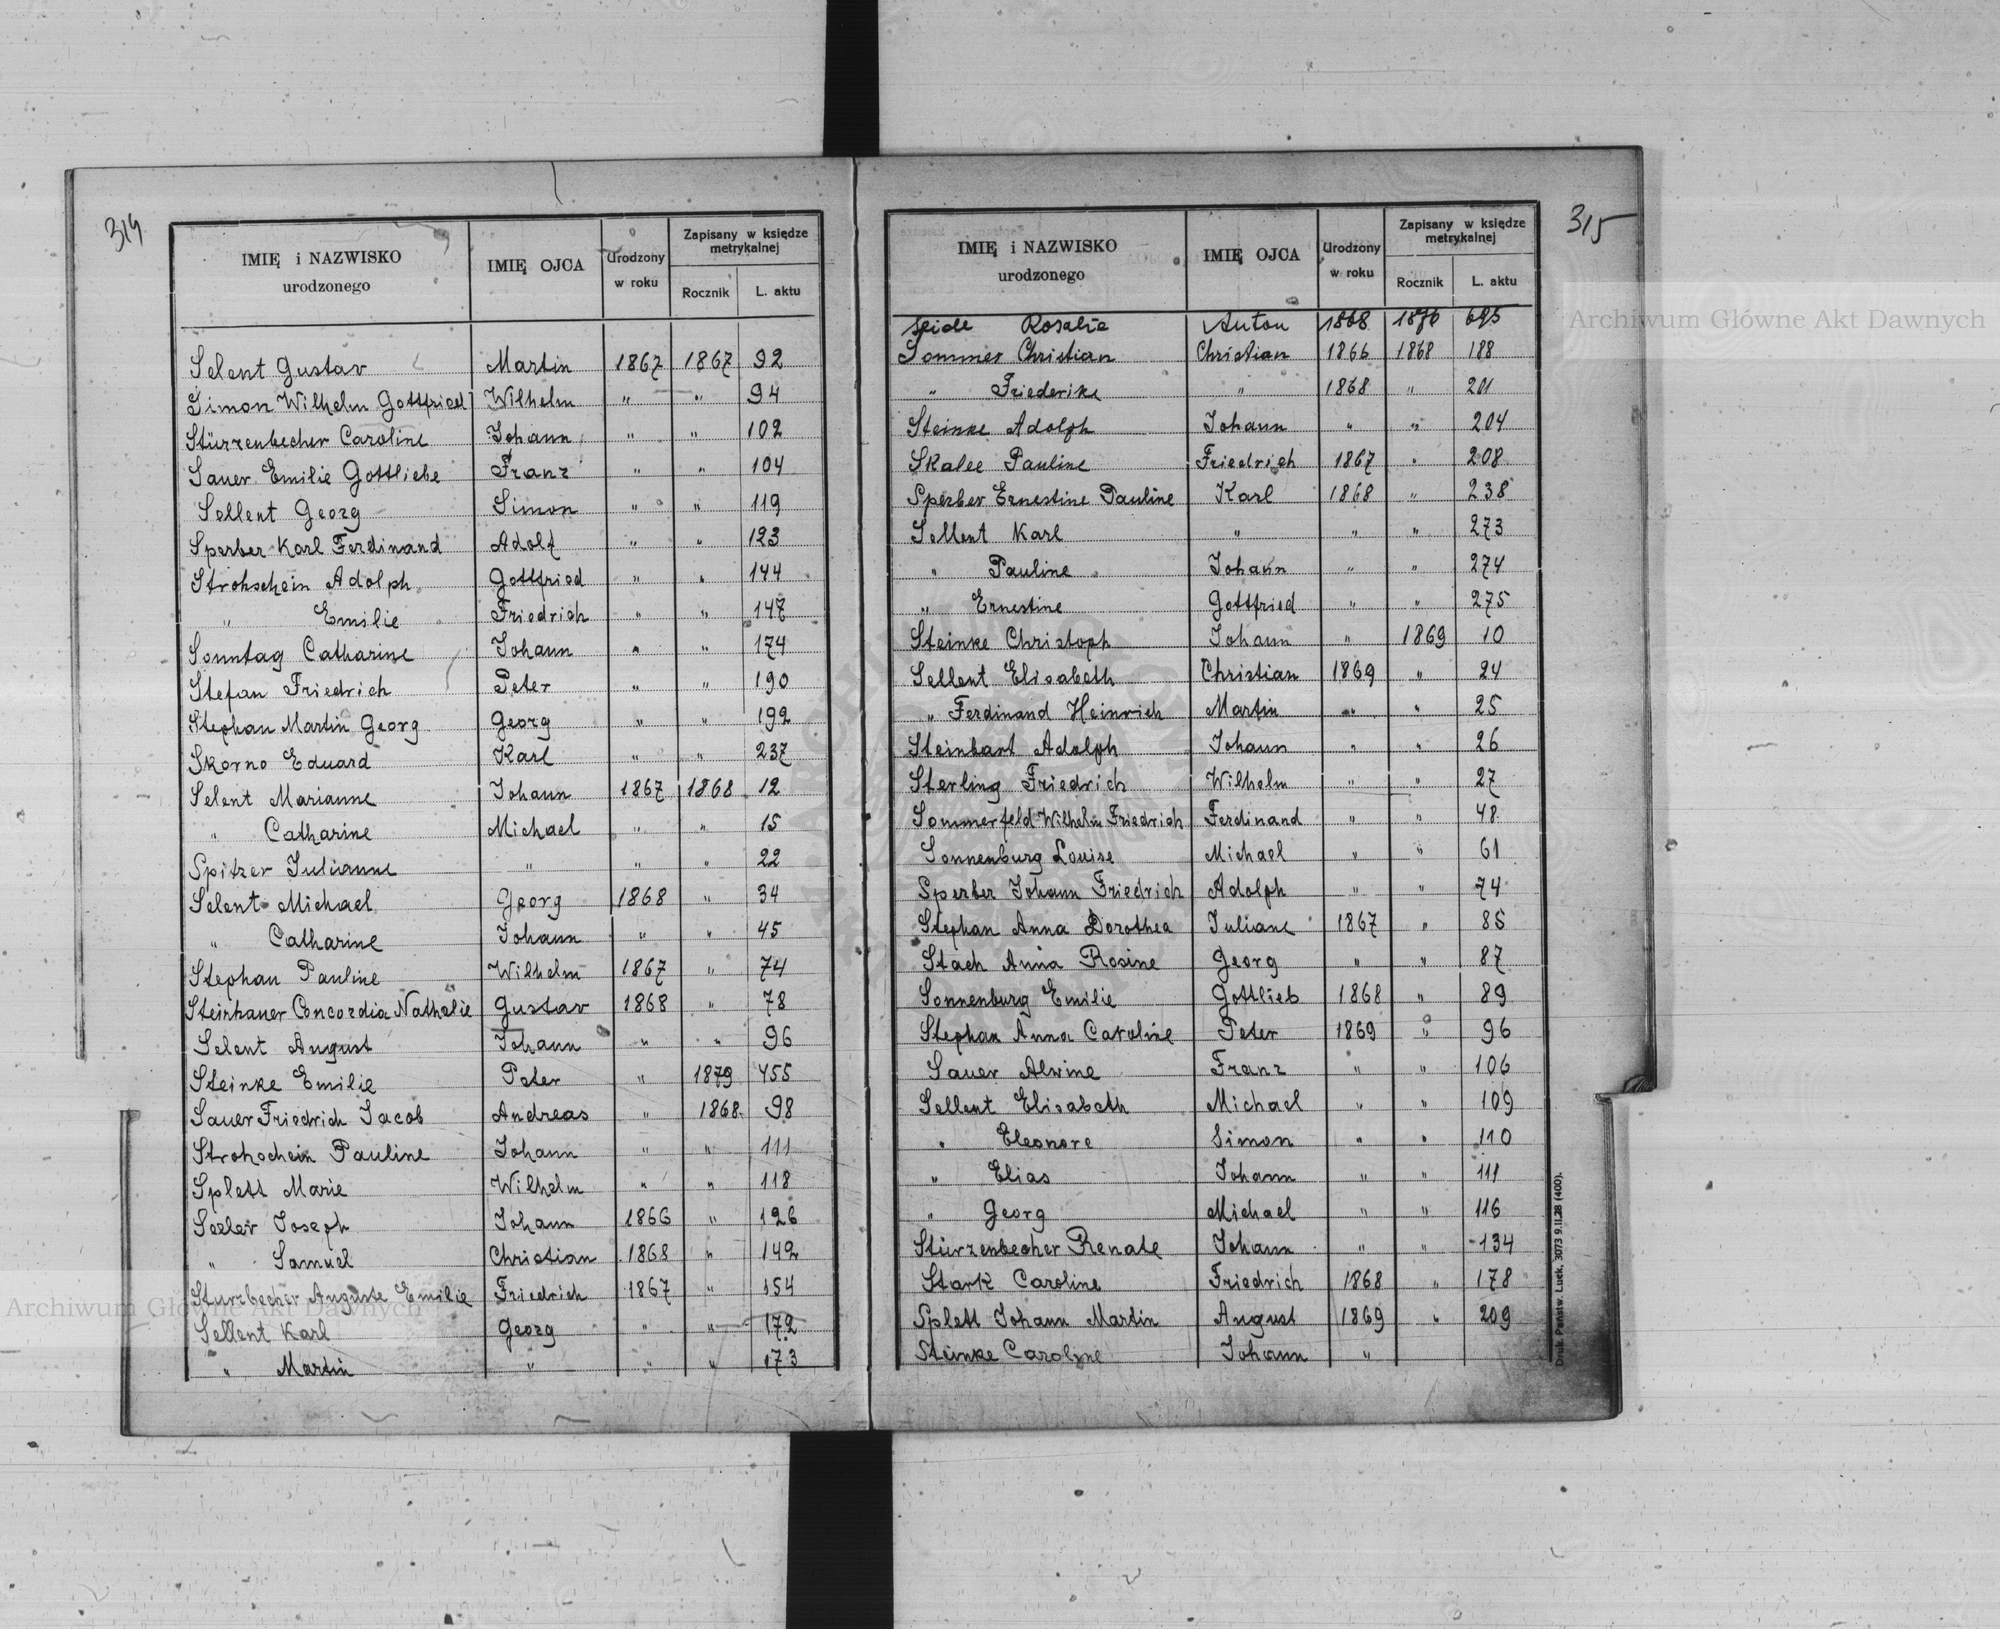 314
IMIĘ i NAZWISKO urodzonego IMIĘ OJCA Urodzony w roku Zapisany w księdze metrykalnej Rocznik L. aktu
Selent Gustav Martin 1867 1867 92
Simon Wilhelm Gottfried Wilhelm " " 94
Stürzenbecher Caroline Johann " " 102
Sauer Emilie Gottliebe Franz " " 104
Sellent Georg Simon " " 119
Sperber Karl Ferdinand Adolf " " 123
Strohschein Adolph Gottfried " " 144
" Emilie Friedrich " " 147
Sonntag Catharine Johann " " 174
Stefan Friedrich Peter " " 190
Stephan Martin Georg Georg " " 192
Skorno Eduard Karl " " 237
Selent Marianne Johann 1867 1868 12
" Catharine Michael " " 15
Spitzer Julianne " " " 22
Selent Michael Georg 1868 " 34
" Catharine Johann " " 45
Stephan Pauline Wilhelm 1867 " 74
Steinhauer Concordia Nathalie Gustav 1868 " 78
Selent August Johann " " 96
Steinke Emilie Peter " 1879 455
Sauer Friedrich Jacob Andreas " 1868 98
Strohschein Pauline Johann " " 111
Splett Marie Wilhelm " " 118
Seeler Joseph Johann 1866 " 126
" Samuel Christian 1868 " 142
Sturzbecher Auguste Emilie Friedrich 1867 " 154
Sellent Karl Georg " " 172
" Martin " " " 173
315
IMIĘ i NAZWISKO urodzonego IMIĘ OJCA Urodzony w roku Zapisany w księdze metrykalnej Rocznik L. aktu
Seide Rosalie Anton 1868 1876 695
Sommer Christian Christian 1866 1868 188
" Friederike " 1868 " 201
Steinke Adolph Johann " " 204
Skalee Pauline Friedrich 1867 " 208
Sperber Ernestine Pauline Karl 1868 " 238
Sellent Karl " " " 273
" Pauline Johann " " 274
" Ernestine Gottfried " " 275
Steinke Christoph Johann " 1869 10
Sellent Elisabeth Christian 1869 " 24
" Ferdinand Heinrich Martin " " 25
Steinbart Adolph Johann " " 26
Sterling Friedrich Wilhelm " " 27
Sommerfeld Wilhelm Friedrich Ferdinand " " 48
Sonnenburg Louise Michael " " 61
Sperber Johann Friedrich Adolph " " 74
Stephan Anna Dorothea Juliane 1867 " 85
Stach Anna Rosine Georg " " 87
Sonnenburg Emilie Gottlieb 1868 " 89
Stephan Anna Caroline Peter 1869 " 96
Sauer Alwine Franz " " 106
Sellent Elisabeth Michael " " 109
" Eleonore Simon " " 110
" Elias Johann " " 111
" Georg Michael " " 116
Stürzenbecher Renate Johann " " 134
Stark Caroline Friedrich 1868 " 178
Splett Johann Martin August 1869 " 209
Steinke Caroline Johann "
Druk. Państw. Łuck. 3073 9.II.28 (400).
Archiwum Główne Akt Dawnych
Archiwum Główne Akt Dawnych